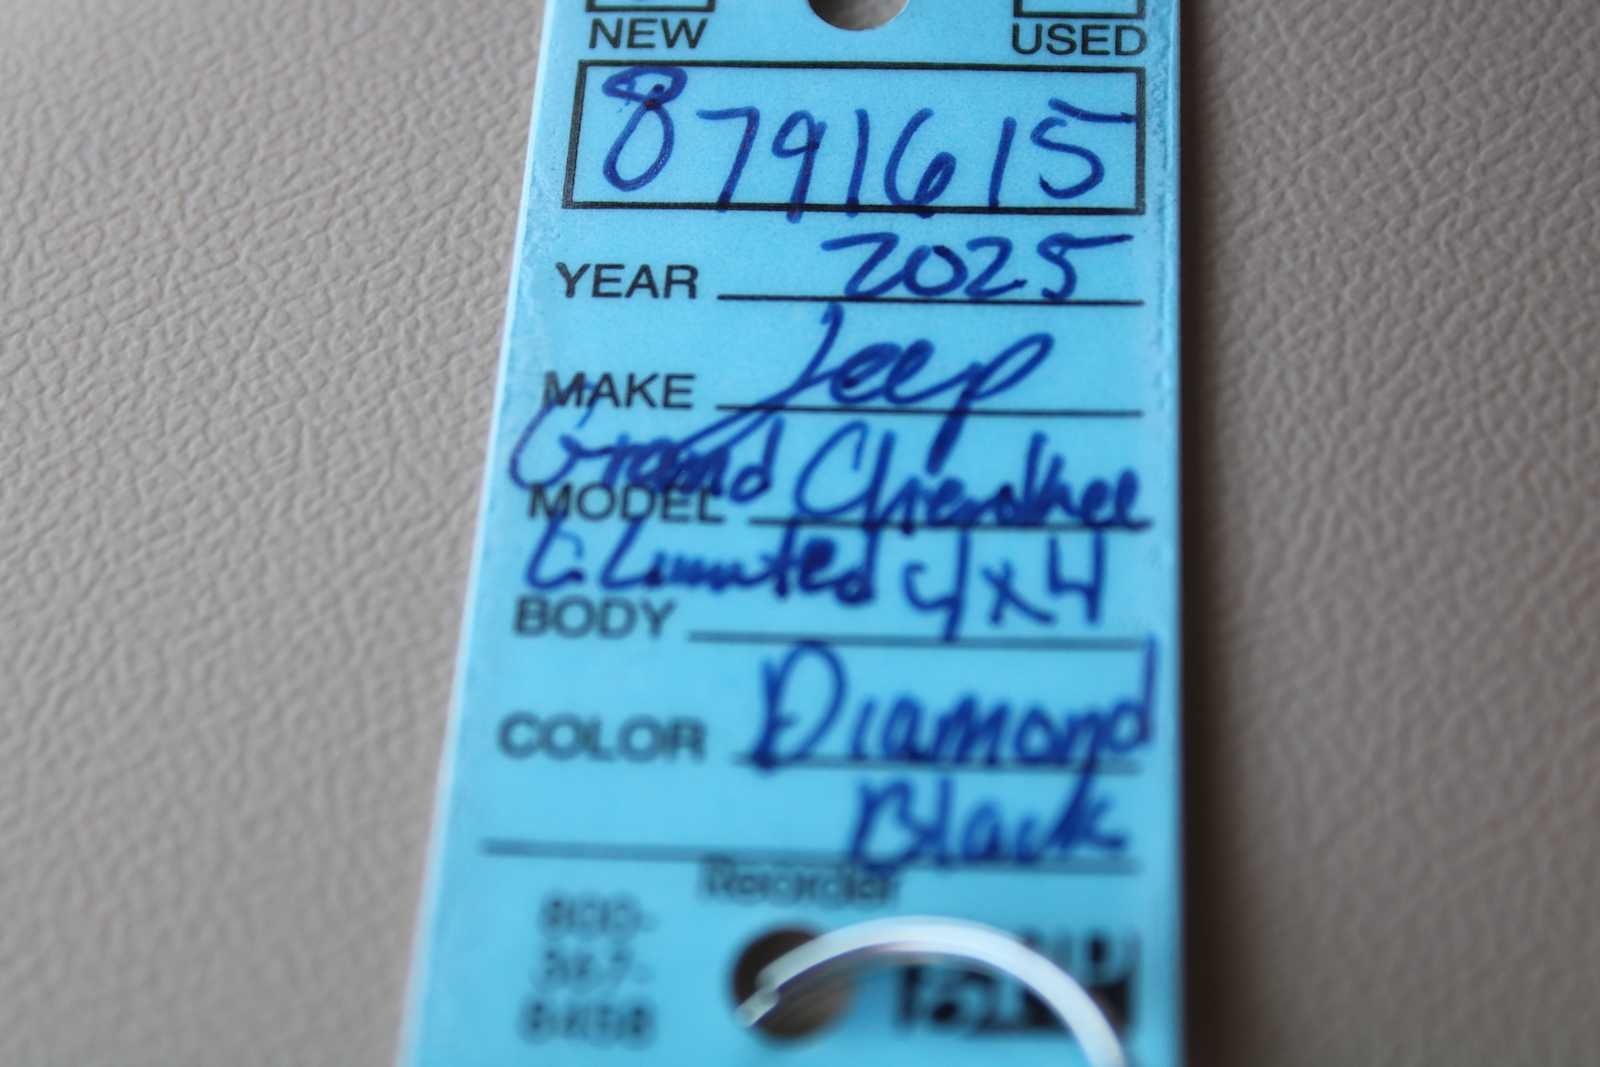 NEW USED
8791615
YEAR 2025
MAKE Jeep
Grand Cherokee
MODEL
L Limited 4x4
BODY
COLOR Diamond
Black
Reorder
800-
367-
8458